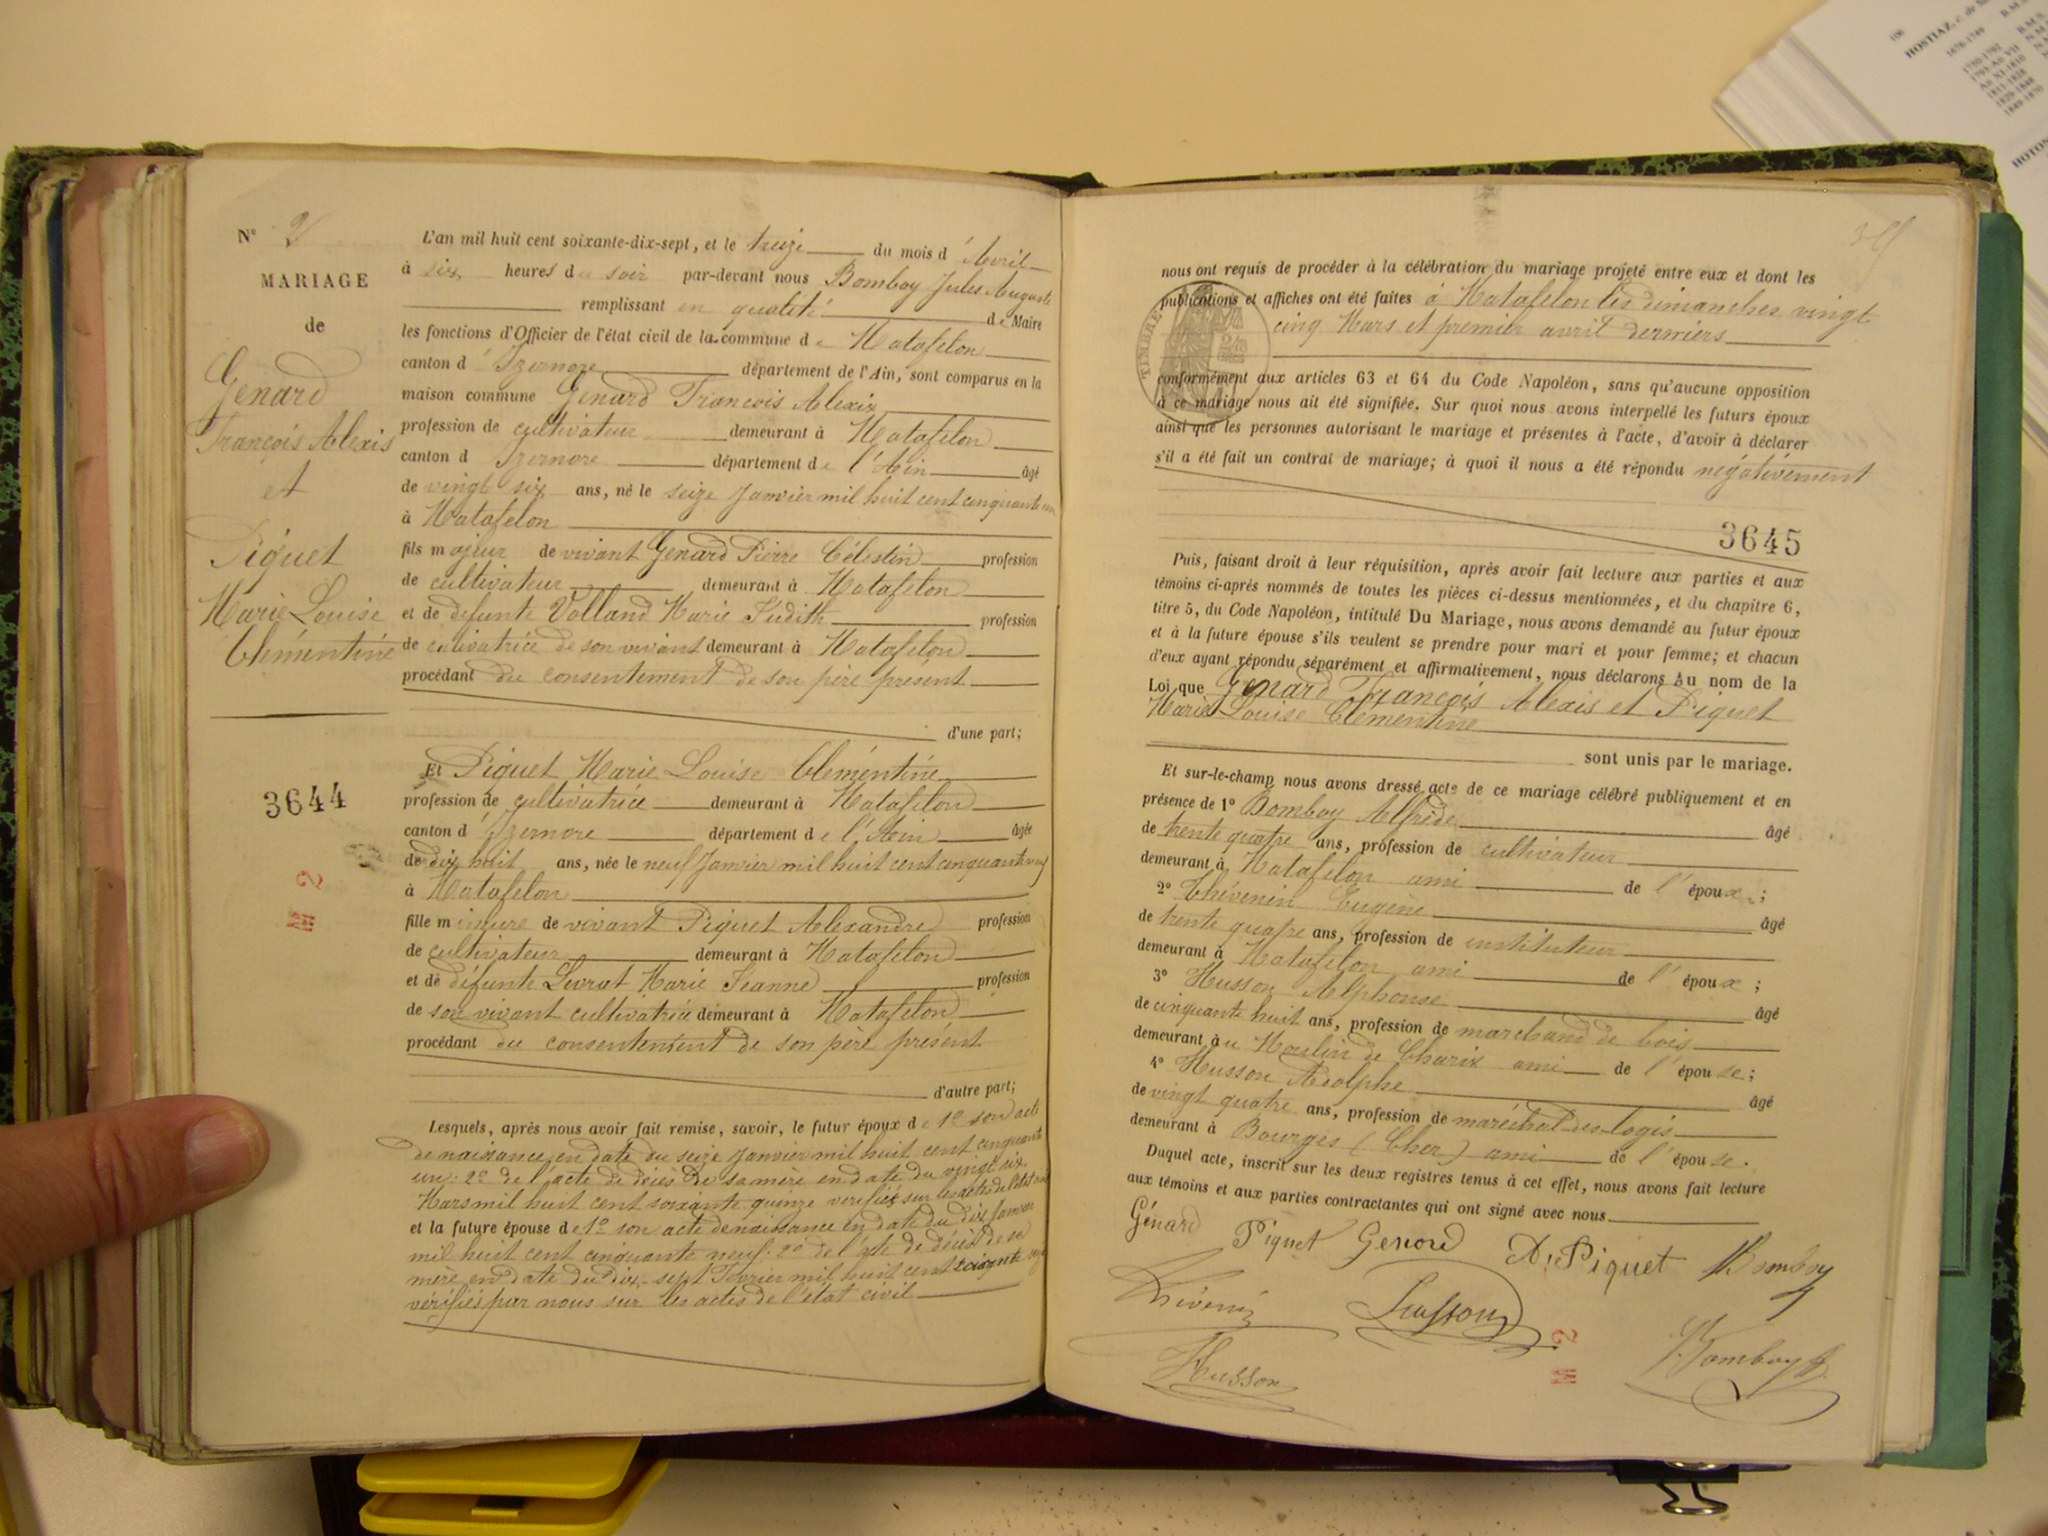 N° 2
MARIAGE
de
Genard
François Alexis
et
Piguet
Marie Louise
Clémentine
3644
M 2
L'an mil huit cent soixante-dix-sept, et le treize du mois d'Avril
à six heures du soir par-devant nous Bomboy Jules Auguste
remplissant en qualité de Maire
les fonctions d'Officier de l'état civil de la commune de Matafelon
canton d'Izernore département de l'Ain, sont comparus en la
maison commune Genard François Alexis
profession de cultivateur demeurant à Matafelon
canton d Izernore département de l'Ain âgé
de vingt six ans, né le seize Janvier mil huit cent cinquante un
à Matafelon
fils majeur de vivant Genard Pierre Célestin profession
de cultivateur demeurant à Matafelon
et de défunte Volland Marie Judith profession
de cultivatrice de son vivant demeurant à Matafelon
procédant du consentement de son père présent
d'une part;
Et Piguet Marie Louise Clémentine
profession de cultivatrice demeurant à Matafelon
canton d'Izernore département de l'Ain âgée
de dix huit ans, née le neuf Janvier mil huit cent cinquante neuf
à Matafelon
fille mineure de vivant Piguet Alexandre profession
de cultivateur demeurant à Matafelon
et de défunte Livrat Marie Jeanne profession
de son vivant cultivatrice demeurant à Matafelon
procédant du consentement de son père présent
d'autre part;
Lesquels, après nous avoir fait remise, savoir, le futur époux de 1° son acte
de naissance en date du seize Janvier mil huit cent cinquante
un: 2° de l'acte de décès de sa mère en date du vingt six
Mars mil huit cent soixante quinze verifiés sur les actes de l'état civil
et la future épouse de 1° son acte de naissance en date du dix Janvier
mil huit cent cinquante neuf. 2° de l'acte de décès de sa
mère en date du dix-sept Février mil huit cent soixante
vérifiés par nous sur les actes de l'état civil
nous ont requis de procéder à la célébration du mariage projeté entre eux et dont les
publications et affiches ont été faites à Matafelon les dimanches vingt
cinq Mars et premier avril derniers
TIMBRE
conformément aux articles 63 et 64 du Code Napoléon, sans qu'aucune opposition
à ce mariage nous ait été signifiée. Sur quoi nous avons interpellé les futurs époux
ainsi que les personnes autorisant le mariage et présentes à l'acte, d'avoir à déclarer
s'il a été fait un contrat de mariage; à quoi il nous a été répondu négativement
3645
Puis, faisant droit à leur réquisition, après avoir fait lecture aux parties et aux
témoins ci-après nommés de toutes les pièces ci-dessus mentionnées, et du chapitre 6,
titre 5, du Code Napoléon, intitulé Du Mariage, nous avons demandé au futur époux
et à la future épouse s'ils veulent se prendre pour mari et pour femme; et chacun
d'eux ayant répondu séparément et affirmativement, nous déclarons au nom de la
Loi que Genard François Alexis et Piguet
Marie Louise Clémentine
sont unis par le mariage.
Et sur-le-champ nous avons dressé acte de ce mariage célébré publiquement et en
présence de 1° Bomboy Alfrède âgé
de trente quatre ans, profession de cultivateur
demeurant à Matafelon ami de l'époux;
2° Thévenin Eugène âgé
de trente quatre ans, profession de instituteur
demeurant à Matafelon ami de l'époux;
3° Husson Alphonse âgé
de cinquante huit ans, profession de marchand de bois
demeurant au Moulin de Charix ami de l'épouse;
4° Husson Adolphe âgé
de vingt quatre ans, profession de maréchal des logis
demeurant à Bourges (Cher) ami de l'épouse.
Duquel acte, inscrit sur les deux registres tenus à cet effet, nous avons fait lecture
aux témoins et aux parties contractantes qui ont signé avec nous
Génard Piguet Genord A. Piguet Bomboy
Thévenin Husson
Husson Bomboy
M 2
HOSTIAZ, c. de
1676-1749
1750-1792
1793-An VII
An XI-1810
1811-1828
1829-1848
1849-1870
HOTON